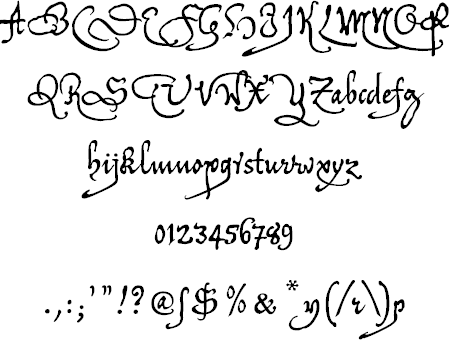 ABCDEFGHIJKLMNOP
QRSTUVWXYZabcdefg
hijklmnopqrstuvwxyz
0123456789
.,:;'"!?@$%&*(/\)